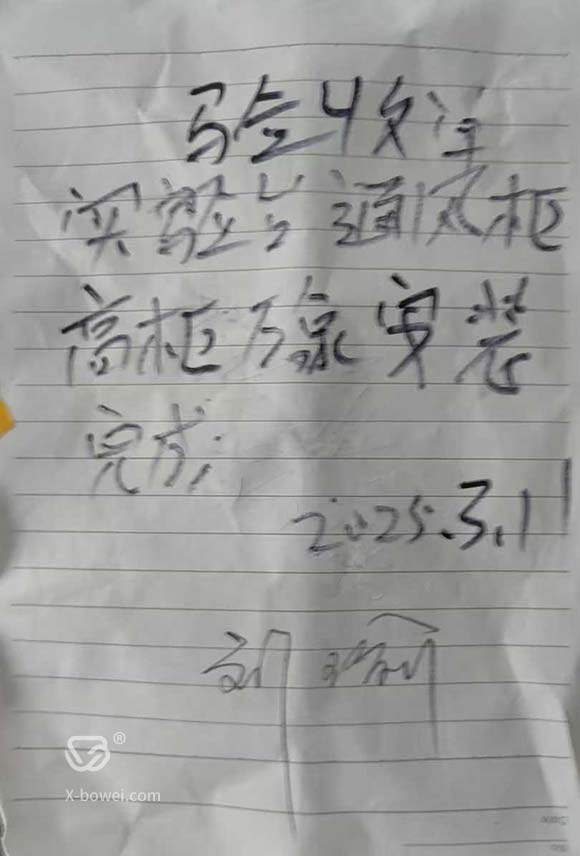 验收单
实验台通风柜
高柜万象安装
完成
2025.3.11
刘
®
X-bowei.com